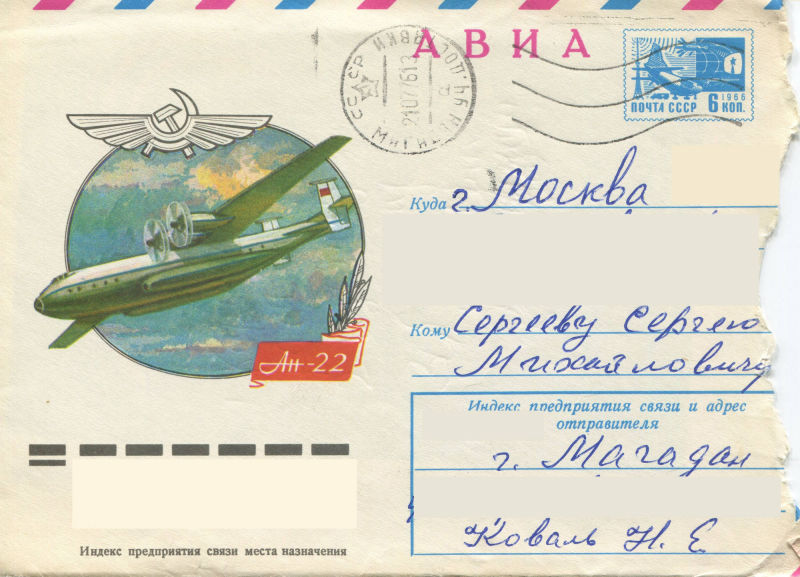 АВИА
1966
ПОЧТА СССР 6 КОП.
СССР
21077613
Куда г. Москва
Кому Сергееву Сергею
Михайловичу
Ан-22
Индекс предприятия связи и адрес
отправителя
г. Магадан
Коваль Н. Е
Индекс предприятия связи места назначения